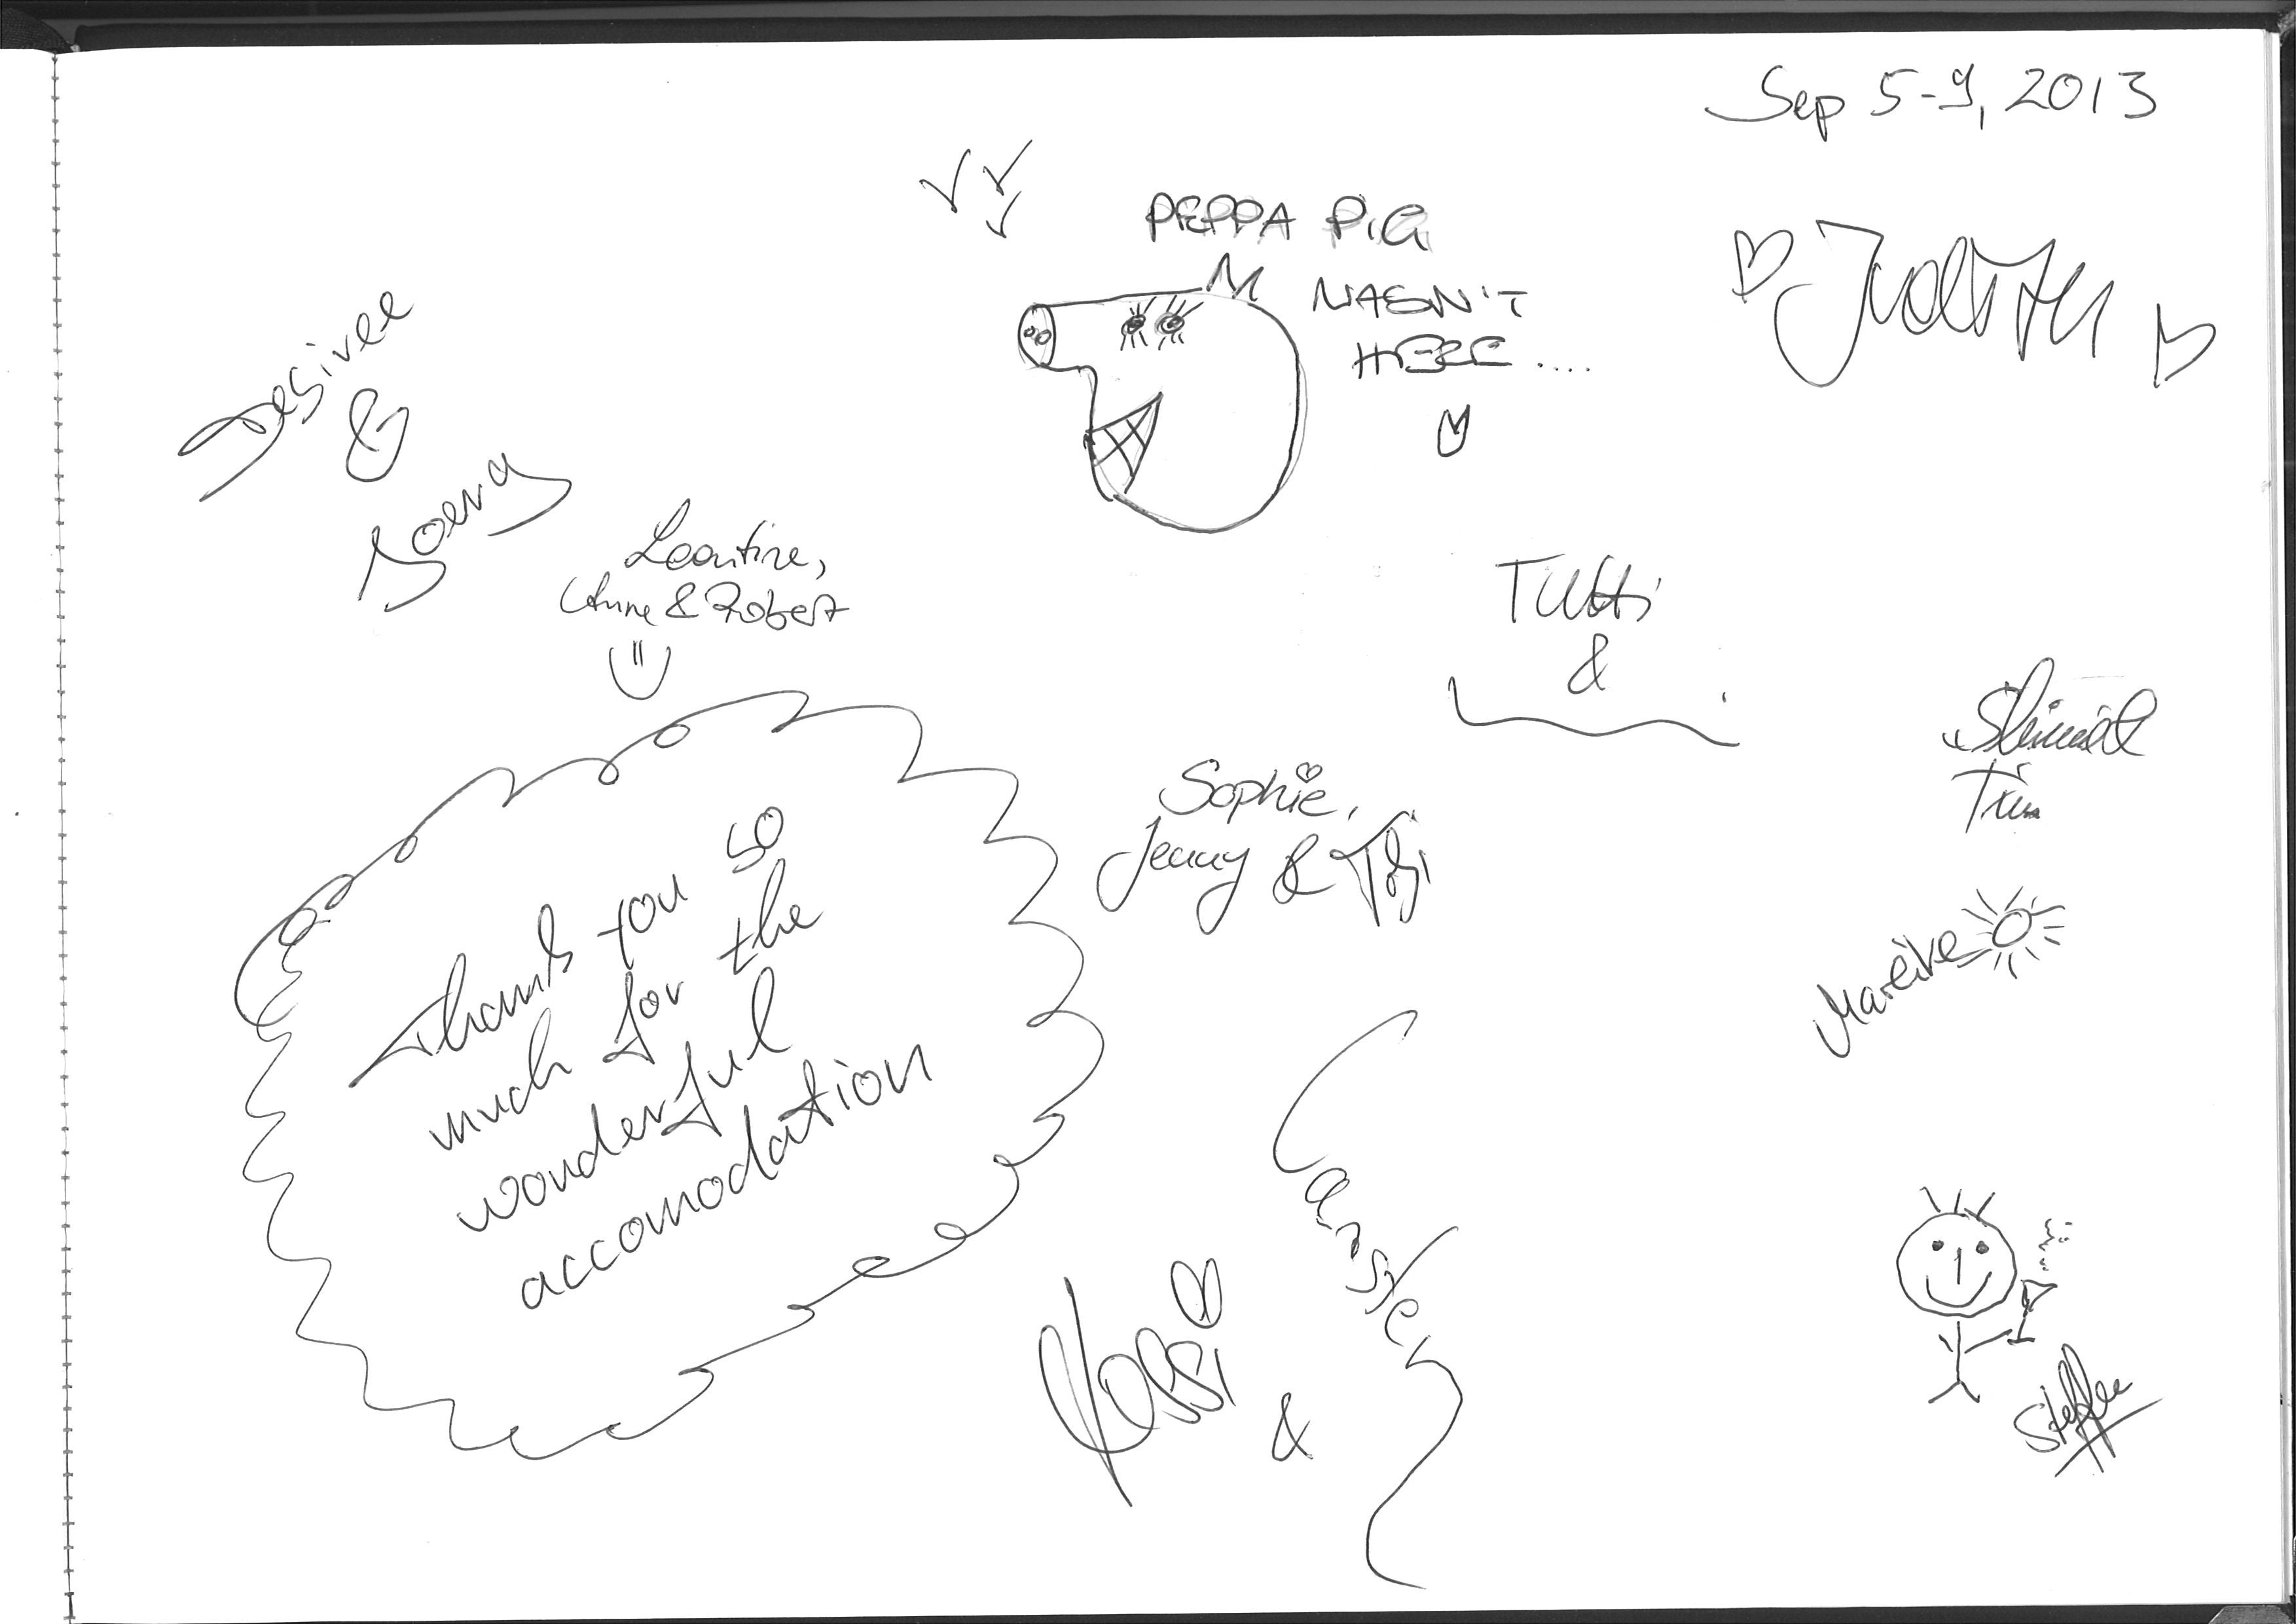 Sep 5-9, 2013
PEPPA PIG
WASN'T
HERE ....
Judith
Desiree
&
Leontine,
Anne & Robert
Tutti
&
Sophie,
Jenny & Tobi
Tim
Mareike
thank you so
much for the
wonderful
accomodation
Carsten
&
Steffen